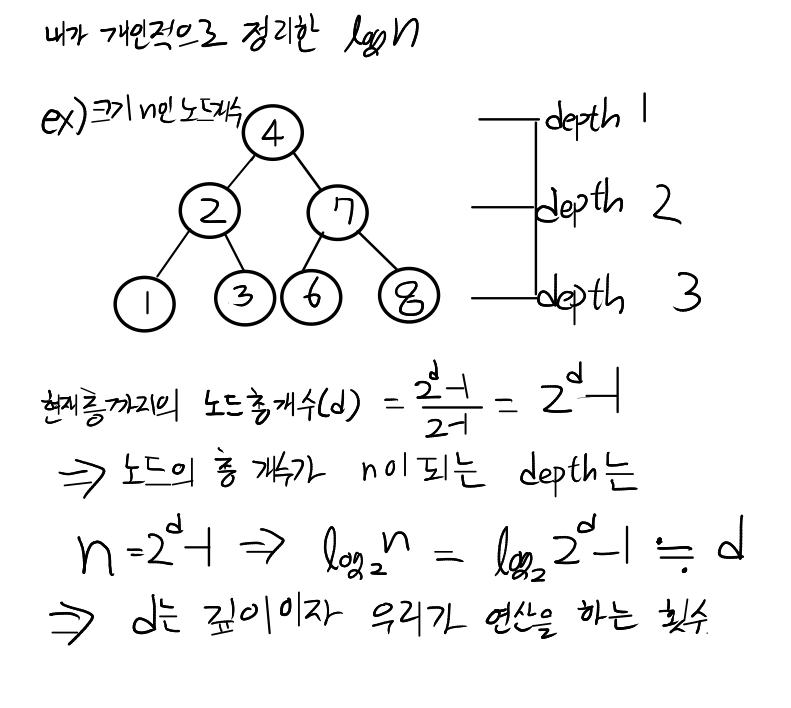 내가 개인적으로 정리한 log n
ex) 크기 n인 노드개수
4
depth 1
2 7
depth 2
1 3 6 8
depth 3
현재층까지의 노드총개수(d) = 2^d-1 / 2-1 = 2^d-1
⇒ 노드의 총 개수가 n이 되는 depth는
n = 2^d-1 ⇒ log₂n = log₂2^d-1 ≒ d
⇒ d는 깊이이자 우리가 연산을 하는 횟수